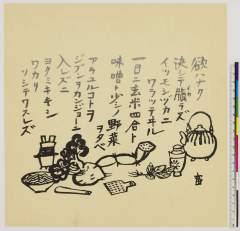 欲ハナク
決シテ瞋ラズ
イツモシヅカニ
ワラッテヰル
一日ニ玄米四合ト
味噌ト少シノ野菜
ヲタベ
アラユルコトヲ
ジブンヲカンジョーニ
入レズニ
ヨクミキキシ
ワカリ
ソシテワスレズ